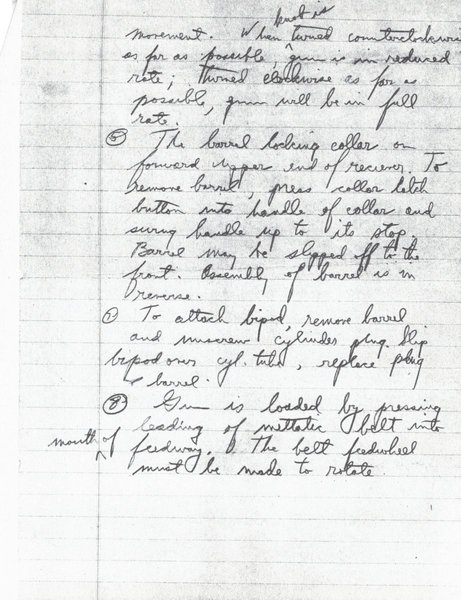 knob is
movement. When turned counterclockwise
as far as possible, gun is in reduced
rate; turned clockwise as far as
possible, gun will be in full
rate.
⑥ The barrel locking collar on
forward upper end of reciever. To
remove barrel, press collar latch
button into handle of collar and
swing handle up to its stop.
Barrel may be slipped off to the
front. Assembly of barrel is in
reverse.
⑦ To attach bipod, remove barrel
and unscrew cylinder plug. Slip
bipod over cyl. tube, replace plug
& barrel.
⑧ Gun is loaded by pressing
leading of mettalic belt into
mouth of feedway. The belt feedwheel
must be made to rotate